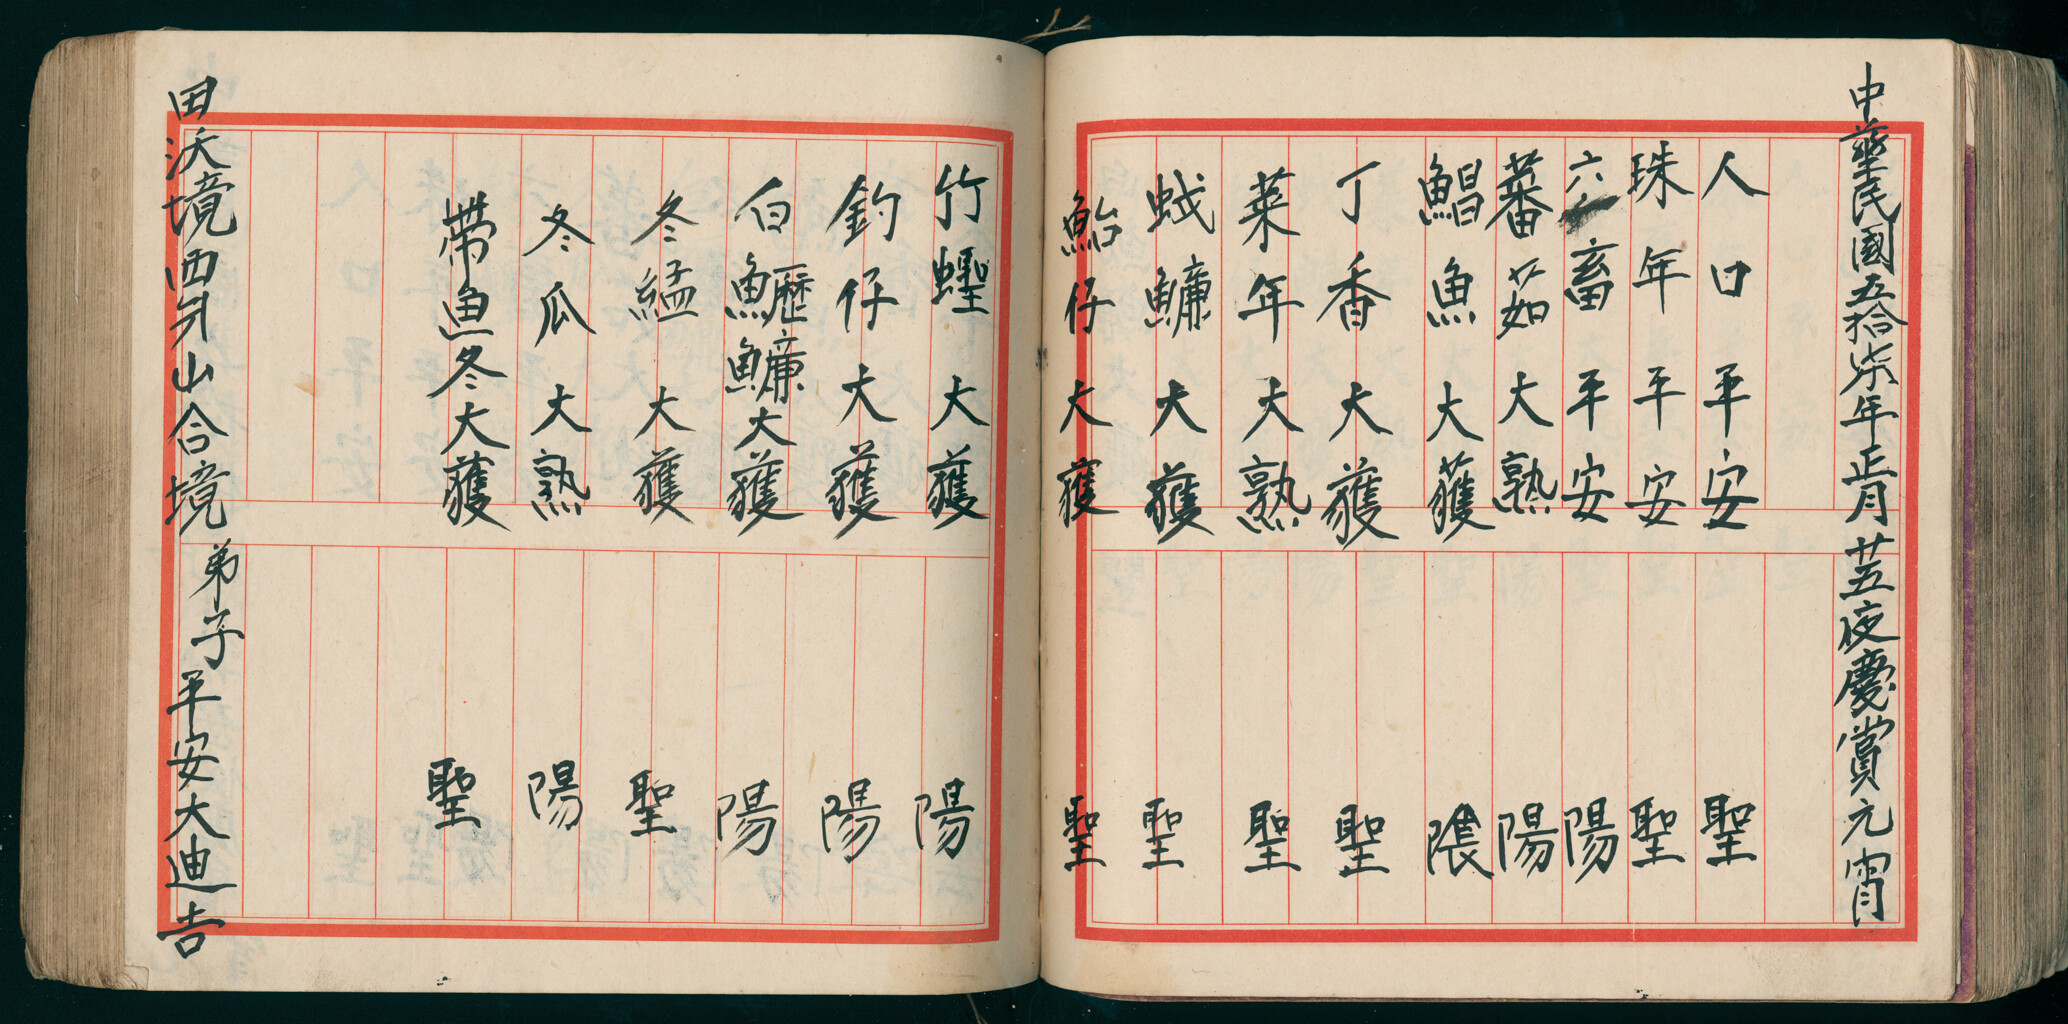 中華民國五拾柒年正月廿五夜慶賞元宵
人口平安 聖
珠年平安 聖
六畜平安 陽
蕃茹大熟 陽
鯧魚大獲
丁香大獲 聖
菜年大熟 聖
蛾鱇大獲 聖
鮐仔大獲 聖
竹蟶大獲 陽
釣仔大獲 陽
白魚大獲 陽
冬艋大獲 聖
冬瓜大熟 陽
帶魚冬大獲 聖
田沃境西山合境弟子平安大迪吉